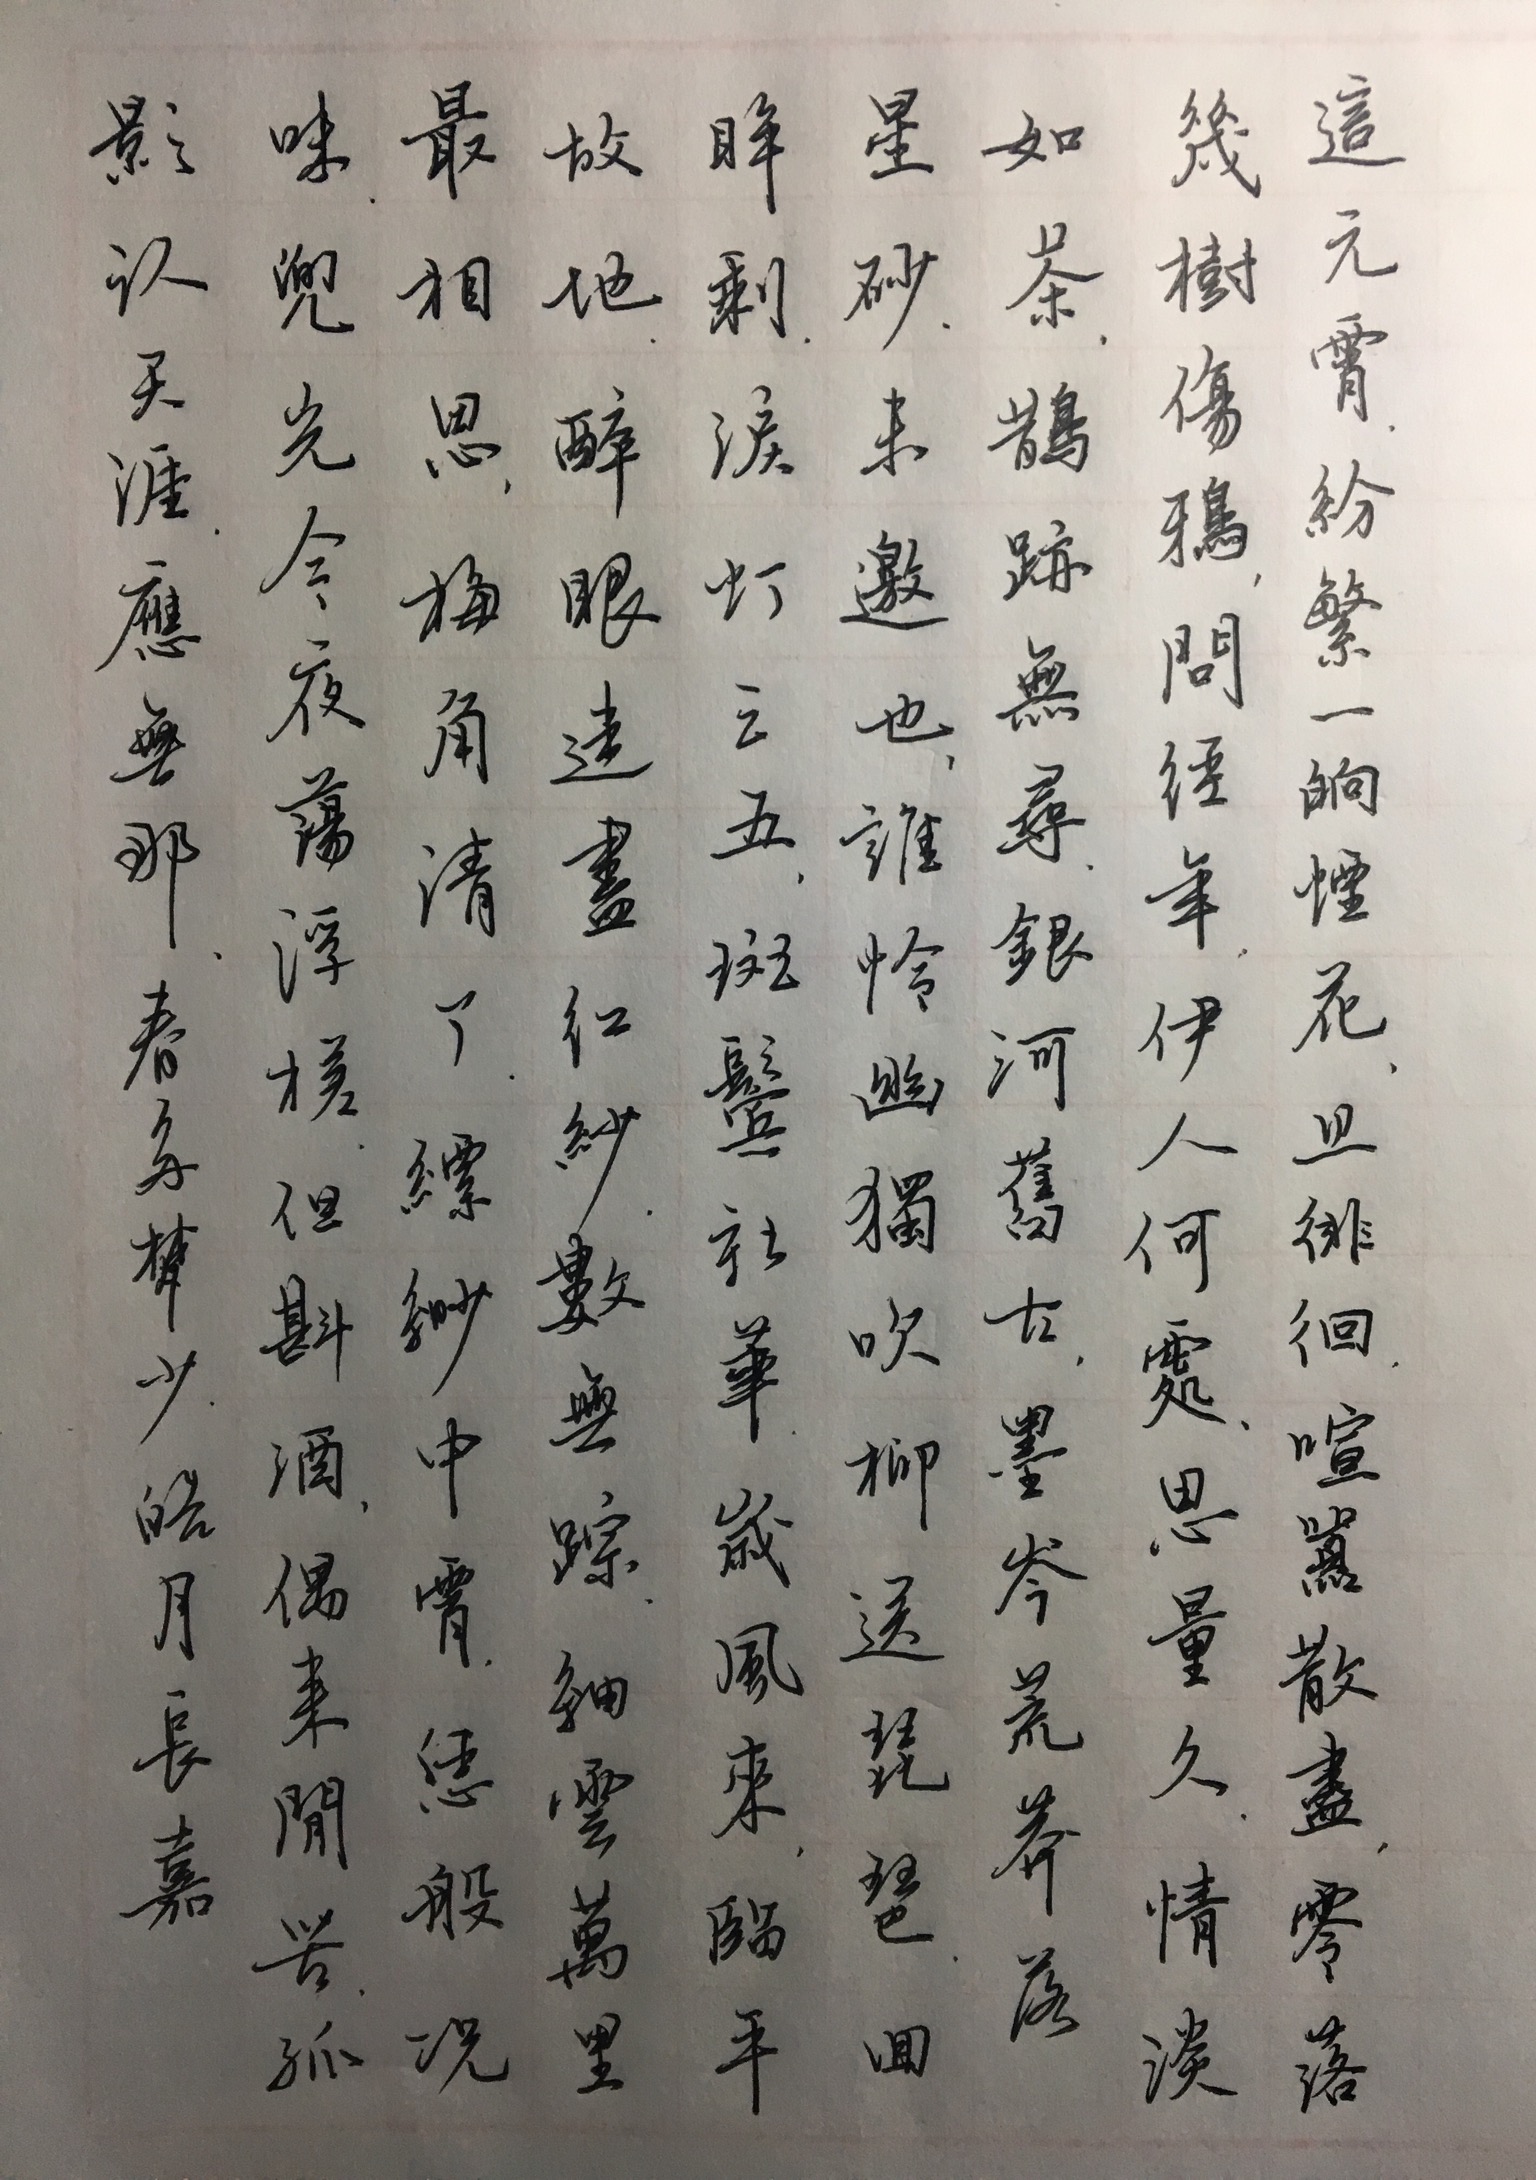 這元霄.紛繁一晌煙花,且徘徊.喧嚣散盡,零落
幾樹傷鴉,問經年.伊人何處,思量久.情淡
如茶,鵲跡無尋.銀河舊古,墨岑荒莽落
星砂.未邀也,誰怜幽獨吹柳送琵琶.回
眸剩.淚灯三五,斑鬢韶華.歲風來,臨平
故地.醉眼迷盡紅紗.數無踪.細雲萬里
最相思,梅角清了.縹緲中霄.恁般况
味.兜光今夜蕩浮槎.但斟酒,偶来閒苦.孤
影认天涯.應無那.春多梦少.皓月長嘉